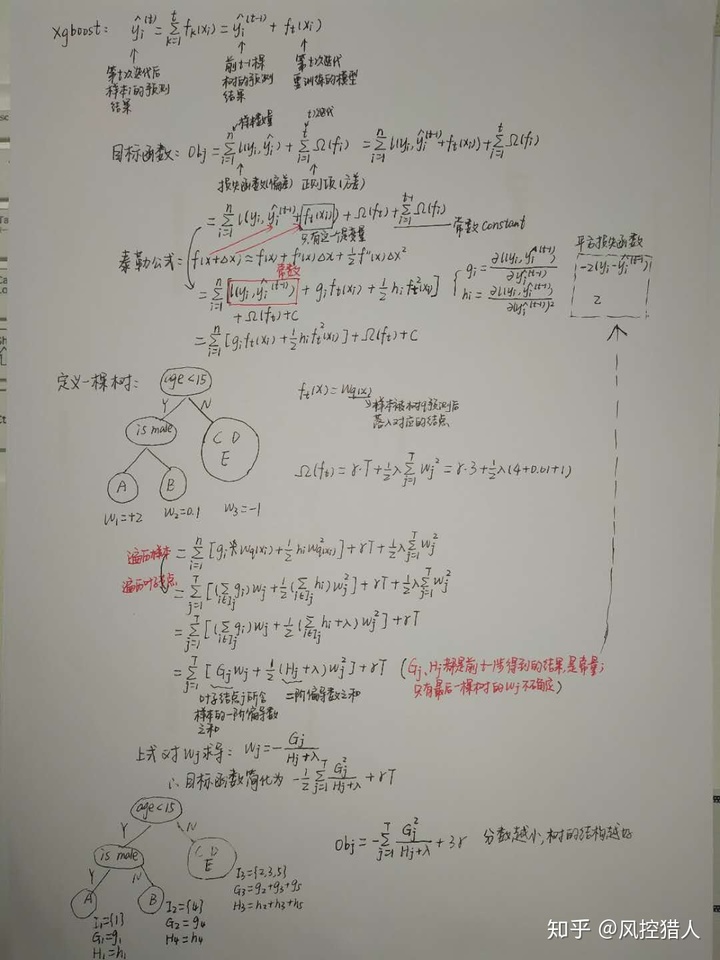 Xgboost: ŷᵢ⁽ᵗ⁾ = Σₖ₌₁ᵗ fₖ(xᵢ) = ŷᵢ⁽ᵗ⁻¹⁾ + fₜ(xᵢ)
第t次迭代后样本i的预测结果
前t-1棵树的预测结果
第t次迭代要训练的模型
样本数量
t次迭代
目标函数: Obj = Σᵢ₌₁ⁿ l(yᵢ, ŷᵢ) + Σᵢ₌₁ᵗ Ω(fᵢ) = Σᵢ₌₁ⁿ l(yᵢ, ŷᵢ⁽ᵗ⁻¹⁾ + fₜ(xᵢ)) + Σᵢ₌₁ᵗ Ω(fᵢ)
损失函数(偏差) 正则项(方差)
= Σᵢ₌₁ⁿ l(yᵢ, ŷᵢ⁽ᵗ⁻¹⁾ + fₜ(xᵢ)) + Ω(fₜ) + Σᵢ₌₁ᵗ⁻¹ Ω(fᵢ)
常数 constant
只有这一个是变量
泰勒公式: f(x+Δx) ≈ f(x) + f'(x)Δx + ½f''(x)Δx²
常数
平方损失函数
= Σᵢ₌₁ⁿ [l(yᵢ, ŷᵢ⁽ᵗ⁻¹⁾) + gᵢfₜ(xᵢ) + ½hᵢfₜ²(xᵢ)]
+ Ω(fₜ) + C
gᵢ = ∂l(yᵢ, ŷᵢ⁽ᵗ⁻¹⁾) / ∂ŷᵢ⁽ᵗ⁻¹⁾
hᵢ = ∂l(yᵢ, ŷᵢ⁽ᵗ⁻¹⁾) / ∂(ŷᵢ⁽ᵗ⁻¹⁾)²
-2(yᵢ - ŷᵢ⁽ᵗ⁻¹⁾)
2
= Σᵢ₌₁ⁿ [gᵢfₜ(xᵢ) + ½hᵢfₜ²(xᵢ)] + Ω(fₜ) + C
定义一棵树:
age<15
Y N
is male
C D
E
A B
W₁=+2 W₂=0.1 W₃=-1
fₜ(x) = W_q(x)
样本被树预测后
落入对应的结点
Ω(fₜ) = γ·T + ½λΣⱼ₌₁ᵀ Wⱼ² = γ·3 + ½λ(4+0.01+1)
遍历样本
= Σᵢ₌₁ⁿ [gᵢW_q(xᵢ) + ½hᵢW²_q(xᵢ)] + γT + ½λΣⱼ₌₁ᵀ Wⱼ²
遍历叶子结点
= Σⱼ₌₁ᵀ [(Σᵢ∈Iⱼ gᵢ)wⱼ + ½(Σᵢ∈Iⱼ hᵢ)wⱼ²] + γT + ½λΣⱼ₌₁ᵀ Wⱼ²
= Σⱼ₌₁ᵀ [(Σᵢ∈Iⱼ gᵢ)wⱼ + ½(Σᵢ∈Iⱼ hᵢ + λ)wⱼ²] + γT
= Σⱼ₌₁ᵀ [Gⱼwⱼ + ½(Hⱼ+λ)wⱼ²] + γT
(Gⱼ、Hⱼ都是前t-1步得到的结果,是常量;
只有最后一棵树的Wⱼ不确定)
叶子结点j所含
样本的一阶偏导数
之和
二阶偏导数之和
上式对Wⱼ求导: Wⱼ = -Gⱼ/(Hⱼ+λ)
∴ 目标函数简化为 -½Σⱼ₌₁ᵀ Gⱼ²/(Hⱼ+λ) + γT
age<15
Y N
is male
C D
E
Y N
A B
I₁={1}
G₁=g₁
H₁=h₁
I₂={4}
G₂=g₄
H₄=h₄
I₃={2,3,5}
G₃=g₂+g₃+g₅
H₃=h₂+h₃+h₅
Obj = -Σⱼ₌₁ᵀ Gⱼ²/(Hⱼ+λ) + 3γ 分数越小,树的结构越好
知乎 @风控猎人